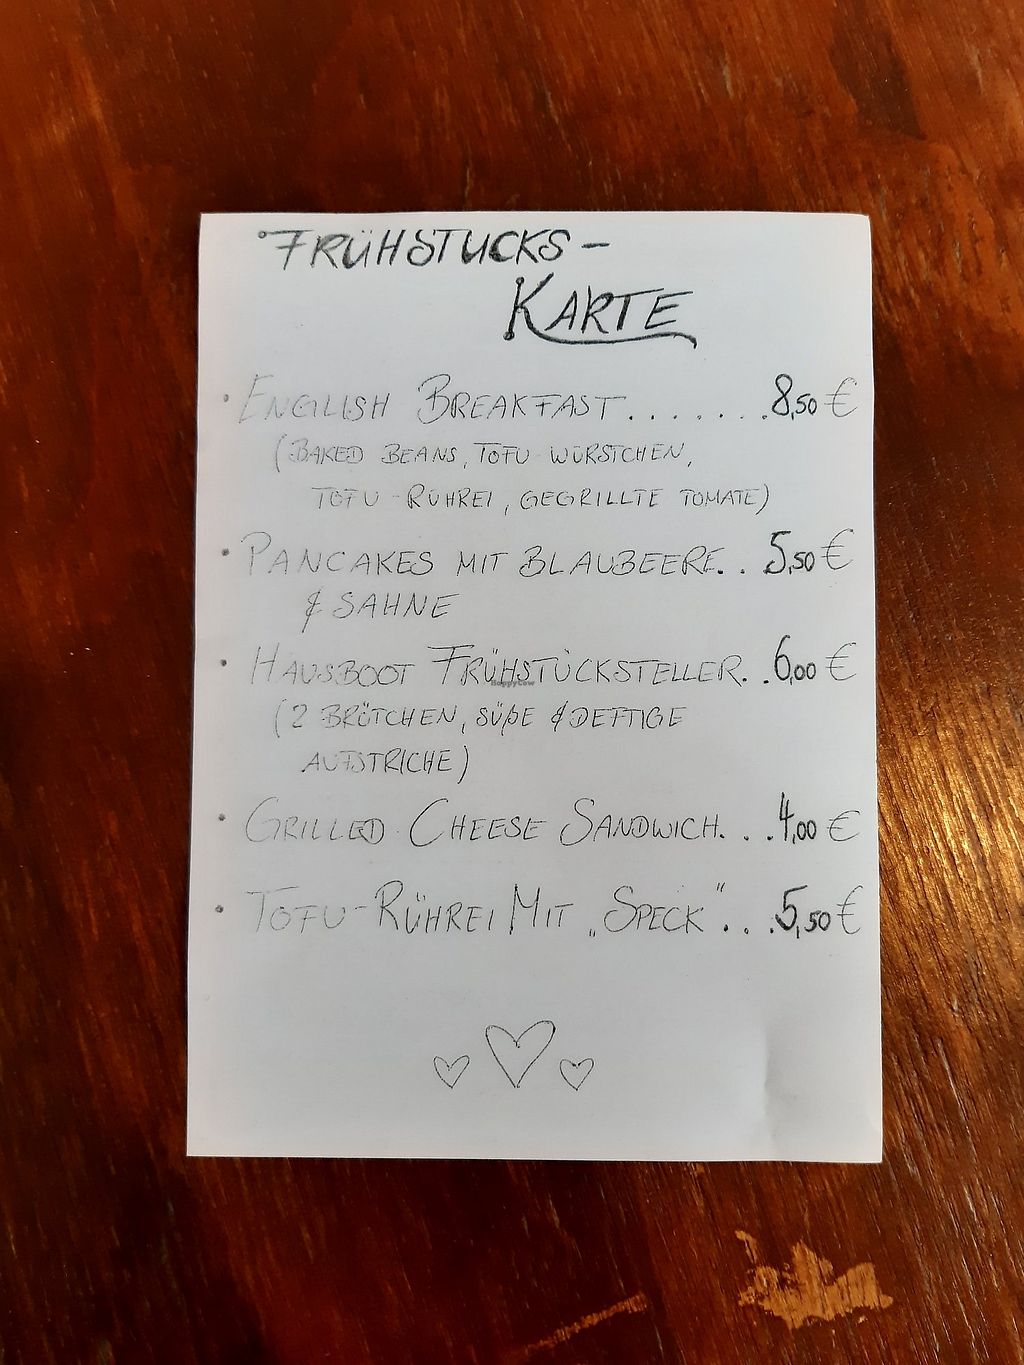 FRÜHSTUCKS-
KARTE
• ENGLISH BREAKFAST.......8,50 €
(BAKED BEANS, TOFU WÜRSTCHEN,
TOFU-RÜHREI, GEGRILLTE TOMATE)
• PANCAKES MIT BLAUBEERE.. 5,50 €
& SAHNE
• HAUSBOOT FRÜHSTÜCKSTELLER. .6,00 €
HappyCow
(2 BRÖTCHEN, SÜßE & DEFTIGE
AUFSTRICHE)
• GRILLED CHEESE SANDWICH. ..4,00 €
• TOFU-RÜHREI MIT „SPECK“...5,50 €